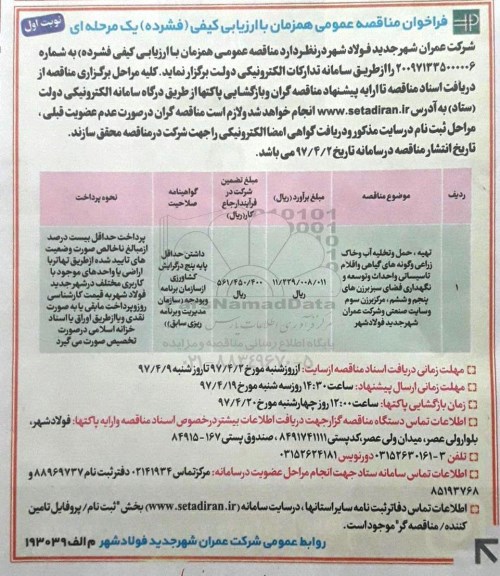 نوبت اول
فراخوان مناقصه عمومی همزمان با ارزیابی کیفی (فشرده) یک مرحله ای
شرکت عمران شهر جدید فولاد شهر در نظر دارد مناقصه عمومی همزمان با ارزیابی کیفی فشرده) به شماره
۲۰۰۹۷۱۳۳۵۰۰۰۰۰۶ را از طریق سامانه تدارکات الکترونیکی دولت برگزار نماید. کلیه مراحل برگزاری مناقصه از
دریافت اسناد مناقصه تا ارایه پیشنهاد مناقصه گران و بازگشایی پاکتها از طریق درگاه سامانه الکترونیکی دولت
(ستاد) به آدرس www.setadiran.ir انجام خواهد شد و لازم است مناقصه گران در صورت عدم عضویت قبلی ،
مراحل ثبت نام در سایت مذکور و دریافت گواهی امضا الکترونیکی را جهت شرکت در مناقصه محقق سازند.
تاریخ انتشار مناقصه در سامانه تاریخ ۹۷/۴/۲ می باشد.
ردیف
موضوع مناقصه
مبلغ برآورد (ریال)
مبلغ تضمین
شرکت در
فرآیند ارجاع
کار (ریال)
گواهینامه
صلاحیت
نحوه پرداخت
۱
تهیه ، حمل و تخلیه آب و خاک
زراعی و گونه های گیاهی و اقلام
تاسیساتی و احداث و توسعه و
نگهداری فضای سبز برزن های
پنجم و ششم ، مرکز برزن سوم
و سایت صنعتی شرکت عمران
شهر جدید فولادشهر
۱۱/۲۲۹/۰۰۸/۰۱۱
ریال
۵۶۱/۴۵۰/۴۰۰
ریال
داشتن حداقل
پایه پنج در گرایش
کشاورزی
از سازمان برنامه
وبودجه (سازمان
مدیریت و برنامه
ریزی سابق))
پرداخت حداقل بیست درصد
از مبالغ ناخالص صورت وضعیت
های تایید شده از طریق تهاتر با
اراضی یا واحدهای موجود با
کاربری مختلف در شهر جدید
فولاد شهر به قیمت کارشناسی
روز و پرداخت مابقی یا به صورت
نقدی و یا از طریق اوراق یا اسناد
خزانه اسلامی در صورت
تخصیص صورت می گیرد
ParsNamadData
پایگاه اطلاع رسانی مناقصه و مزایده
۰۲۱-۸۸۳۴۹۶۷۰-۵
مهلت زمانی دریافت اسناد مناقصه از سایت: از روز شنبه مورخ ۹۷/۴/۲ تا روز شنبه ۹۷/۴/۹
مهلت زمانی ارسال پیشنهاد: ساعت ۱۴:۳۰ روز سه شنبه مورخ ۹۷/۴/۱۹
زمان بازگشایی پاکتها: ساعت ۱۲:۰۰ روز چهارشنبه مورخ ۹۷/۴/۲۰
اطلاعات تماس دستگاه مناقصه گزار جهت دریافت اطلاعات بیشتر در خصوص اسناد مناقصه و ارایه پاکتها: فولادشهر،
بلوار ولی عصر، میدان ولی عصر، کدپستی ۸۴۹۱۷۴۱۱۱۱ ، صندوق پستی ۱۶۷-۸۴۹۱۵
تلفن ۳-۰۳۱۵۲۶۳۰۱۶۱ دورنویس ۰۳۱۵۲۶۲۴۱۸۱
اطلاعات تماس سامانه ستاد جهت انجام مراحل عضویت در سامانه: مرکز تماس ۰۲۱۴۱۹۳۴ دفتر ثبت نام ۸۸۹۶۹۷۳۷ و
۸۵۱۹۳۷۶۸
اطلاعات تماس دفاتر ثبت نامه سایر استانها ، در سایت سامانه (www.setadiran.ir) بخش "ثبت نام / پروفایل تامین
کننده / مناقصه گر" موجود است.
روابط عمومی شرکت عمران شهر جدید فولادشهر م الف ۱۹۳۰۳۹